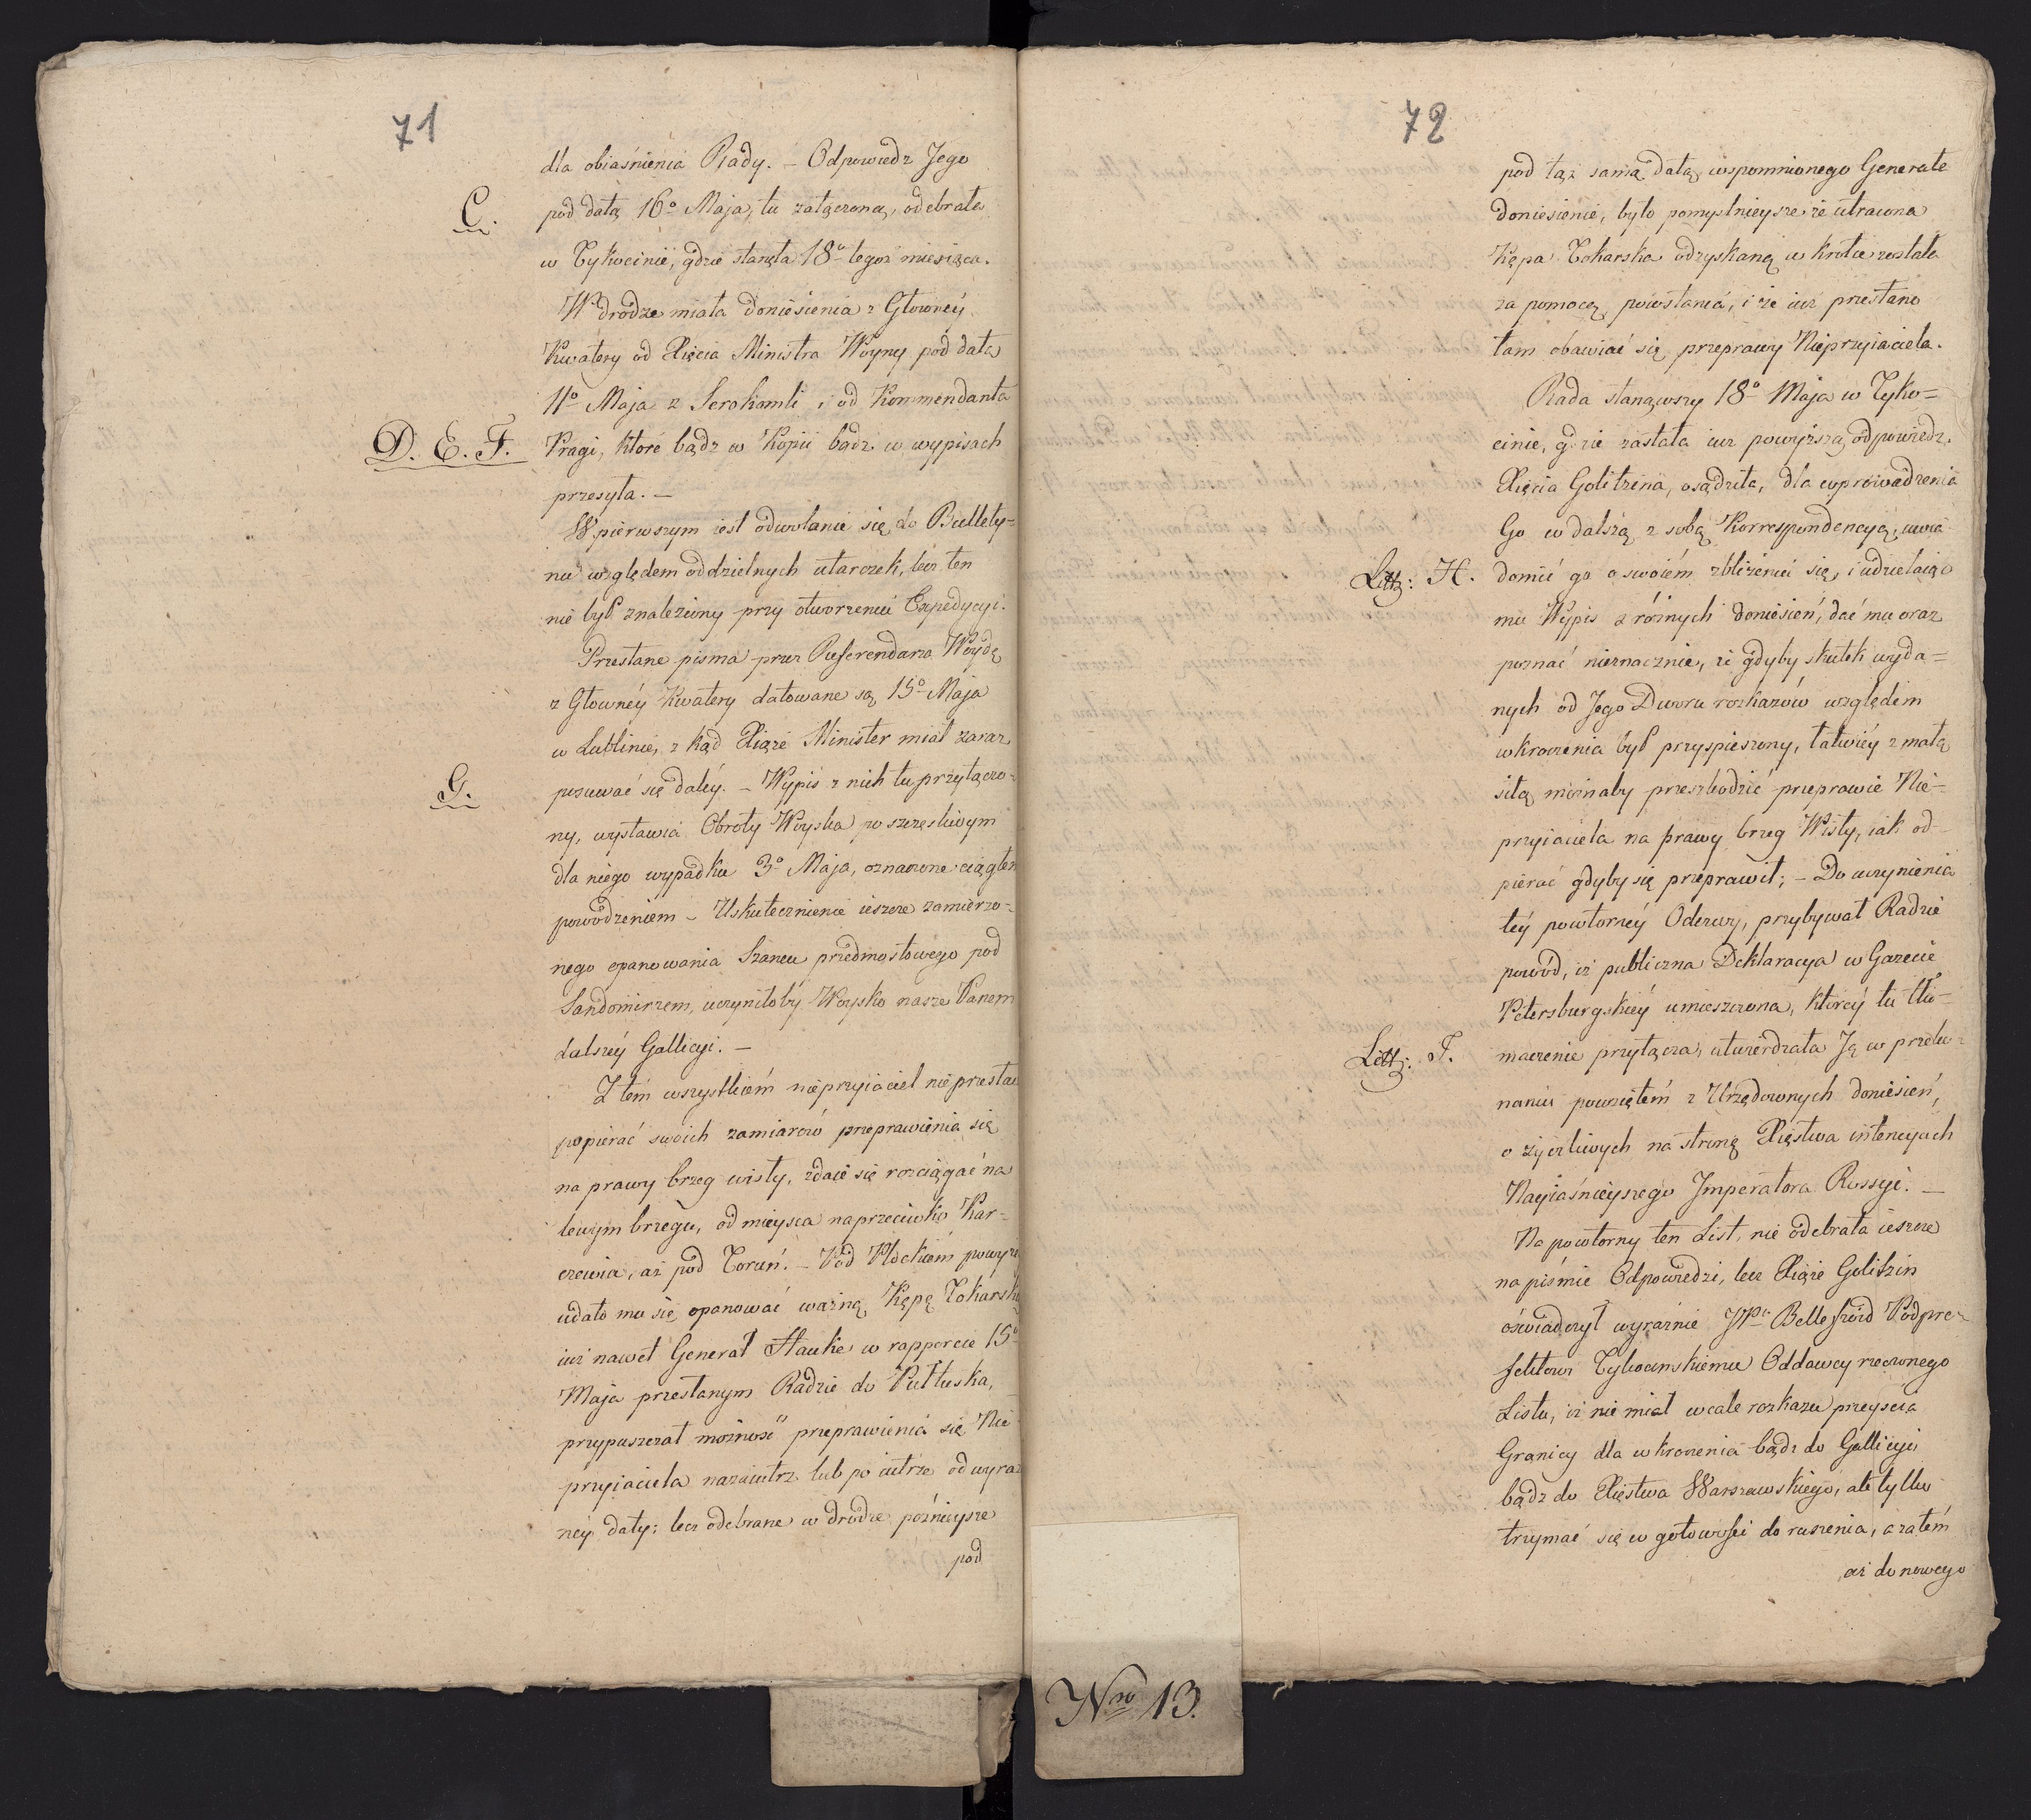 71
dla obiaśnienia Rady. – Odpowiedz Jego
C. pod datą 16º Maja, tu załączoną, odebrała
w Tykocinie, gdzie stanęła 18º tegoż miesiąca.
W drodze miała doniesienia z Głowney
Kwatery od Xięcia Ministra Woyny pod datą
11º Maja z Serokomli i od Kommendanta
D. E. F. Pragi, które bądz w Kopii bądz w wypisach
przesyła. –
W pierwszym iest odwołanie się do Bullety-
nu względem oddzielnych utarczek, lecz ten
nie był znaleziony przy otworzeniu Expedycyi.
Przesłane pisma przez Referendarza Woydę
z Głowney Kwatery datowane są 15º Maja
w Lublinie, z kąd Xiąże Minister miał zaraz
G. posuwać się daley. – Wypis z nich tu przyłączo-
ny, wystawia Obroty Woyska po szczęśliwym
dla niego wypadku 3º Maja, oznaczone ciągłem
powodzeniem – Uskutecznienie ieszcze zamierzo-
nego opanowania Szańcu przedmostowego pod
Sandomirzem, uczyniłoby Woysko nasze Panem
dalszey Gallicyi. –
Z tém wszystkiém nieprzyiaciel nieprzestaie
popierać swoich zamiarów przeprawienia się
na prawy brzeg wisły, zdaie się rozciągać na
lewym brzegu, od mieysca naprzeciwko Kar-
czewia, aż pod Toruń. – Pod Płockiem powyż
udało mu się opanować ważną Kępę Tokarską
iuż nawet Generał Hauke w rapporcie 15º
Maja przesłanym Radzie do Pułtuska,
przypuszczał możność przeprawienia się Nie
przyiaciela nazaiutrz lub po iutrze od wyraż
ney daty; lecz odebrane w drodze poźnieysze
pod
72
pod tąż samą datą wspomnionego Generała
doniesienie, było pomyślnieysze że utracona
Kępa Tokarska odzyskaną w krótce została
za pomocą powstania, i że iuż przestano
tam obawiać się przeprawy Nieprzyiaciela.
Rada stanąwszy 18º Maja w Tyko=
cinie, gdzie zastała iuż powyższą odpowiedz
Xięcia Golitzina, osądziła, dla wprowadzenia
Go w dalszą z sobą Korrespondencyą, uwia
Litt: H. domić go o swoiém zbliżeniu się, i udzielaiąc
mu Wypis z różnych doniesień, dać mu oraz
poznać nieznacznie, że gdyby skutek wyda=
nych od Jego Dworu rozkazów względem
wkroczenia był przyspieszony, łatwiey z małą
siłą możnaby przeszkodzić przeprawie Nie-
przyiaciela na prawy brzeg Wisły, iak od-
pierać gdyby się przeprawił; – Do uczynienia
tey powtorney Odezwy, przybywał Radzie
powód, iż publiczna Deklaracya w Gazecie
Petersburgskiey umieszczona, ktorey tu tłu-
Litt: I. maczenie przyłącza, utwierdzała Ją w przeko-
naniu powziętém z Urzędownych doniesień,
o życzliwych na stronę Xięstwa intencyach
Nayiaśnieyszego Imperatora Rossyi. –
Na powtorny ten List, nie odebrała ieszcze
na piśmie Odpowiedzi, lecz Xiąże Golitzin
oświadczył wyraźnie JPu Bellefroid Podpre-
fektowi Tykocinskiemu Oddawcy rzeczonego
Listu, iż nie miał wcale rozkazu przeyścia
Granicy dla wkroczenia bądz do Gallicyi
bądz do Xięstwa Warszawskiego, ale tylko
trzymać się w gotowości do ruszenia, a zatém
aż do nowego
Nro 13.